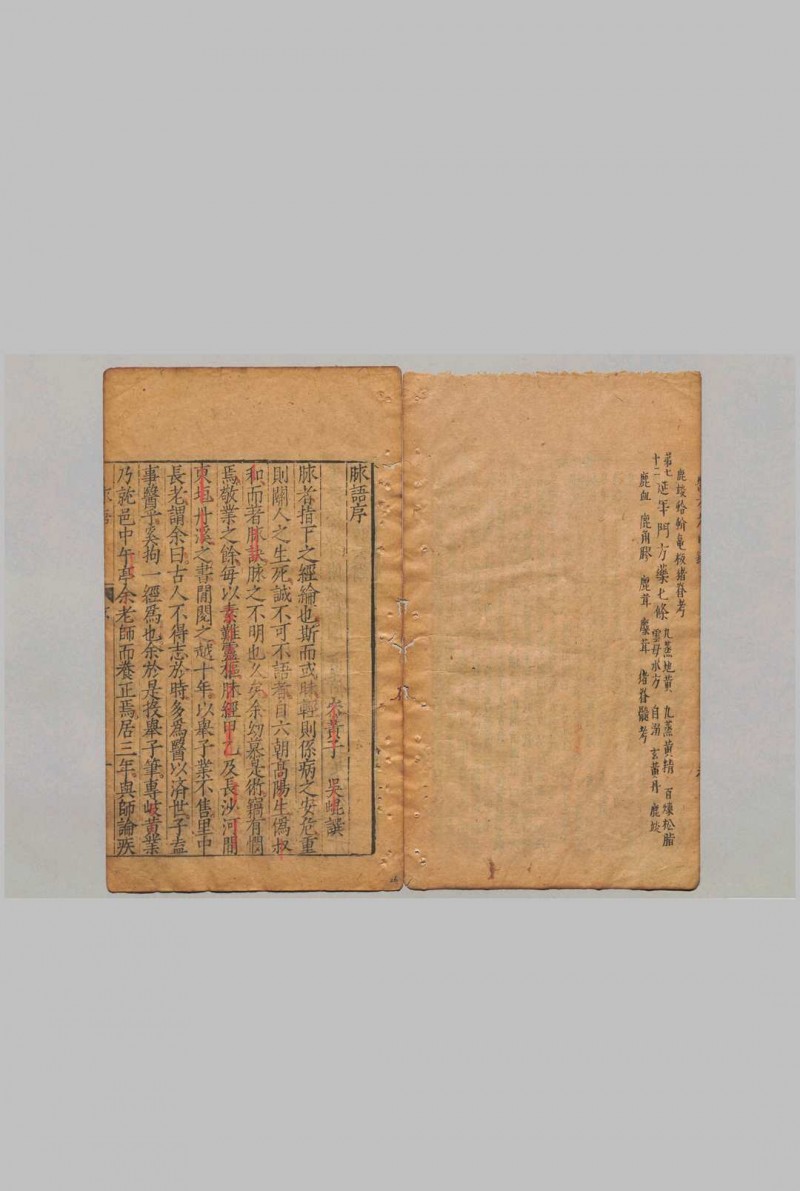 鹿茸 龜板 猪脊考
第七十二 延年門方藥七條 九蒸地黃 九蒸黃精 百煉松脂
雲母水方 自溺 玄黃丹 鹿
鹿血 鹿角膠 鹿茸 麋茸 猪脊髓考
脉語序
吳崐譔
脉者指下之經綸也斯而或昧輕則係病之安危重
則關人之生死誠不可不語者自六朝高陽生僞叔
和而著脉訣脉之不明也久矣余幼慕是術竊有憫
焉敬業之餘每以素難靈樞脉經甲乙及長沙河間
東垣丹溪之書閒閱之越十年以舉子業不售里中
長老謂余曰古人不得志於時多爲醫以濟世子盍
事醫乎奚拘一經爲也余於是投舉子筆專岐黃業
乃就邑中午亭余老師而養正焉居三年與師論疾